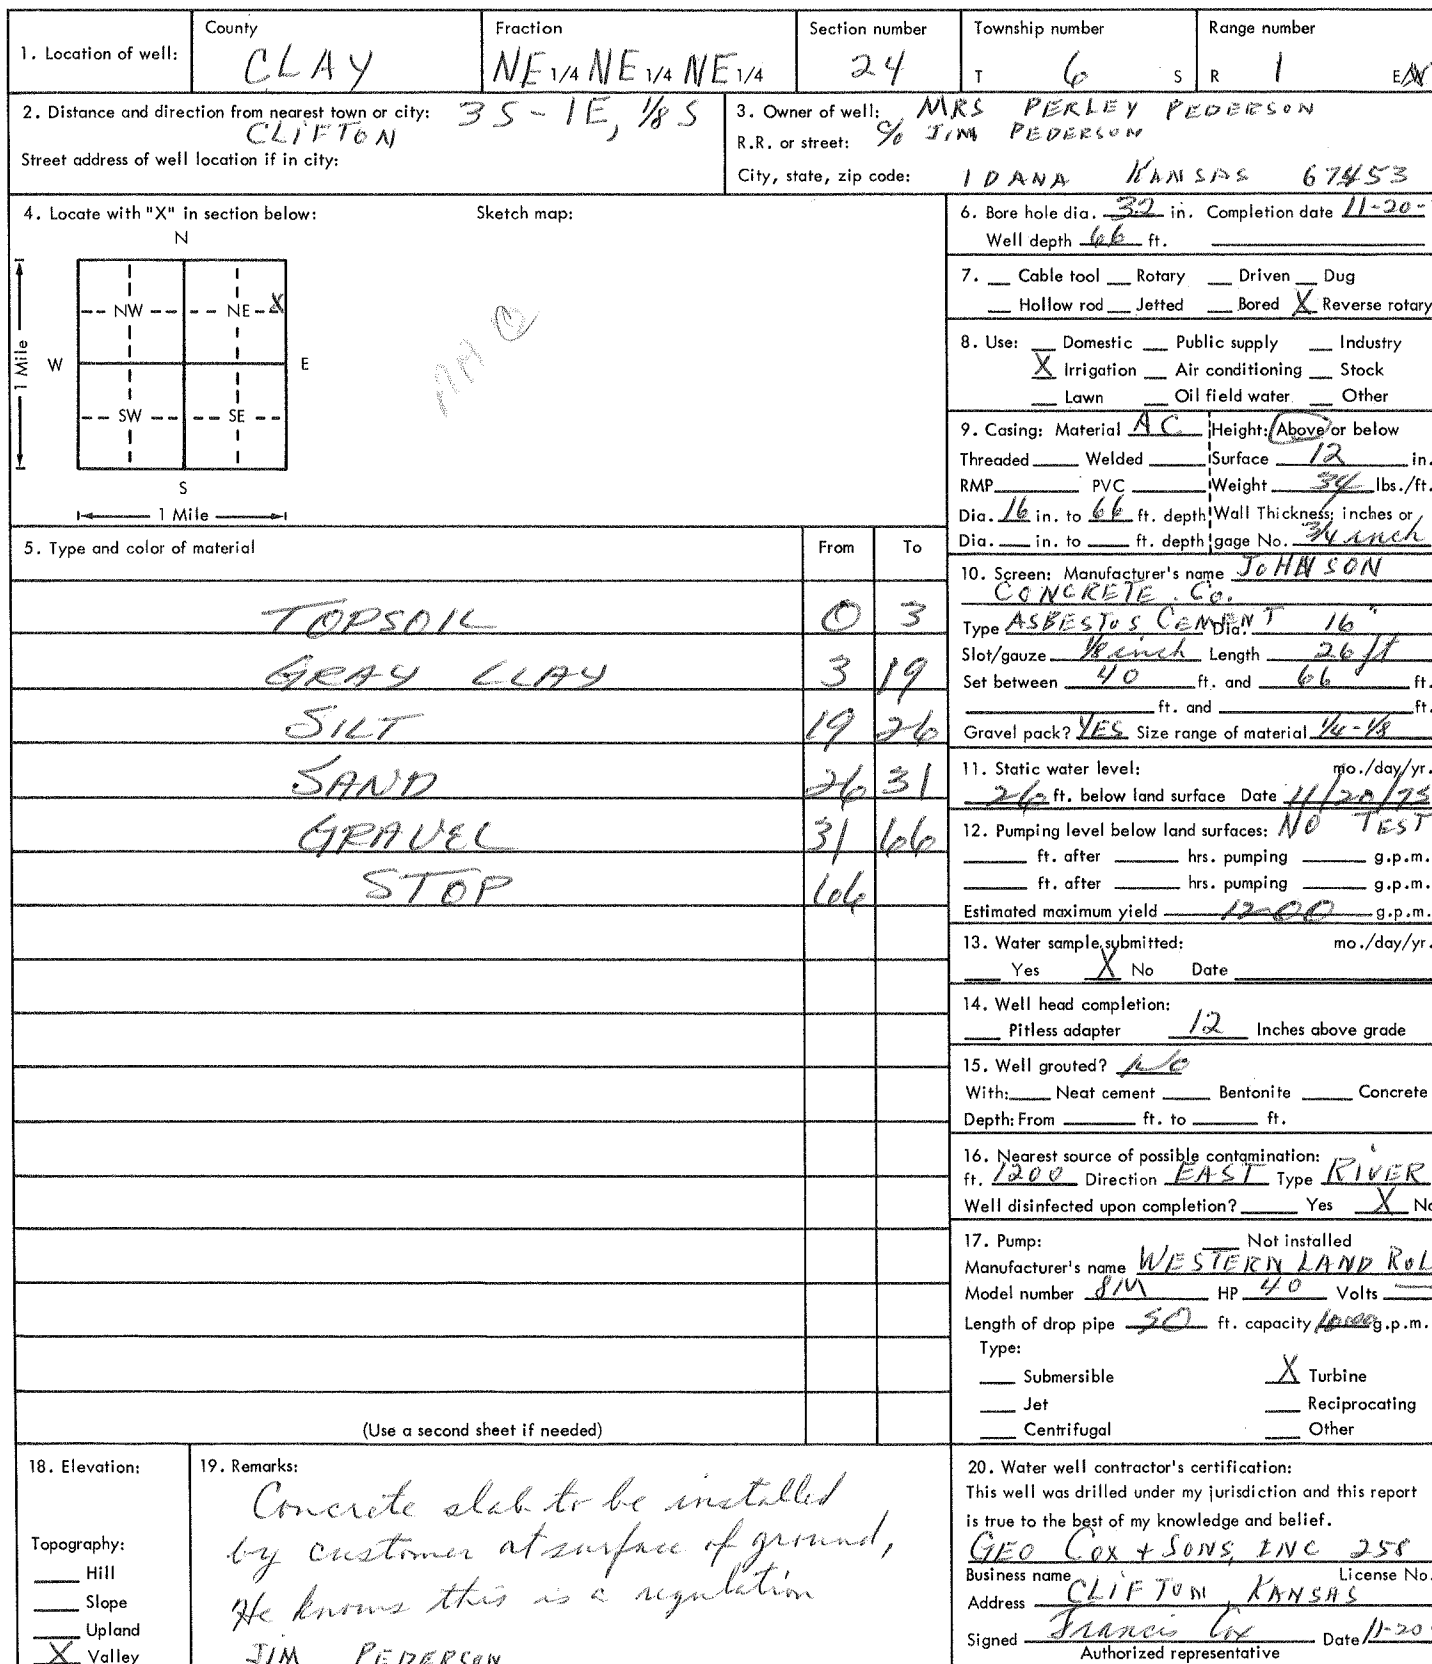 1. Location of well: County CLAY Fraction NE 1/4 NE 1/4 NE 1/4 Section number 24 Township number T 6 S Range number R 1 E/W
2. Distance and direction from nearest town or city: 3 S - 1 E, 1/8 S
CLIFTON
Street address of well location if in city:
3. Owner of well: MRS PERLEY PEDERSON
R.R. or street: c/o JIM PEDERSON
City, state, zip code: IDANA KANSAS 67453
4. Locate with "X" in section below: Sketch map:
N
NW NE X
W E
SW SE
S
1 Mile
1 Mile
5. Type and color of material From To
TOPSOIL 0 3
GRAY CLAY 3 19
SILT 19 26
SAND 26 31
GRAVEL 31 66
STOP 66
(Use a second sheet if needed)
6. Bore hole dia. 32 in. Completion date 11-20-
Well depth 66 ft.
7. Cable tool Rotary Driven Dug
Hollow rod Jetted Bored X Reverse rotary
8. Use: Domestic Public supply Industry
X Irrigation Air conditioning Stock
Lawn Oil field water Other
9. Casing: Material AC Height: Above or below
Threaded Welded Surface 12 in.
RMP PVC Weight 34 lbs./ft.
Dia. 16 in. to 66 ft. depth Wall Thickness: inches or
Dia. in. to ft. depth gage No. 3/4 inch
10. Screen: Manufacturer's name JOHNSON
CONCRETE Co.
Type ASBESTOS CEMENT Dia. 16"
Slot/gauze 1/8 inch Length 26 ft
Set between 40 ft. and 66 ft.
ft. and ft.
Gravel pack? YES Size range of material 1/4 - 1/8
11. Static water level: mo./day/yr.
26 ft. below land surface Date 11/20/75
12. Pumping level below land surfaces: NO TEST
ft. after hrs. pumping g.p.m.
ft. after hrs. pumping g.p.m.
Estimated maximum yield 1200 g.p.m.
13. Water sample submitted: mo./day/yr.
Yes X No Date
14. Well head completion:
Pitless adapter 12 Inches above grade
15. Well grouted? NO
With: Neat cement Bentonite Concrete
Depth: From ft. to ft.
16. Nearest source of possible contamination:
ft. 1200 Direction EAST Type RIVER
Well disinfected upon completion? Yes X No
17. Pump: Not installed
Manufacturer's name WESTERN LAND ROL
Model number 8M HP 40 Volts
Length of drop pipe 50 ft. capacity g.p.m.
Type:
Submersible X Turbine
Jet Reciprocating
Centrifugal Other
18. Elevation:
Topography:
Hill
Slope
Upland
X Valley
19. Remarks:
Concrete slab to be installed
by customer at surface of ground,
He knows this is a regulation
JIM PEDERSON
20. Water well contractor's certification:
This well was drilled under my jurisdiction and this report
is true to the best of my knowledge and belief.
GEO COX + SONS, INC 258
Business name License No.
Address CLIFTON, KANSAS
Signed Francis Cox Date 11-20-
Authorized representative